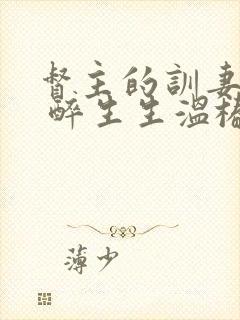 督主的訓妻
醉生生溫樁
薄少